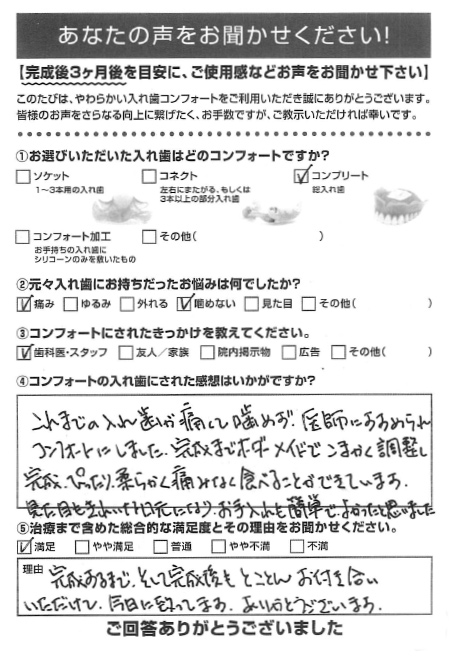 あなたの声をお聞かせください!
【完成後3ヶ月後を目安に、ご使用感などお声をお聞かせ下さい】
このたびは、やわらかい入れ歯コンフォートをご利用いただき誠にありがとうございます。
皆様のお声をさらなる向上に繋げたく、お手数ですが、ご教示いただければ幸いです。
①お選びいただいた入れ歯はどのコンフォートですか?
ソケット
1～3本用の入れ歯
コネクト
左右にまたがる、もしくは
3本以上の部分入れ歯
コンプリート
総入れ歯
コンフォート加工
お手持ちの入れ歯に
シリコーンのみを敷いたもの
その他( )
②元々入れ歯にお持ちだったお悩みは何でしたか?
痛み ゆるみ 外れる 噛めない 見た目 その他( )
③コンフォートにされたきっかけを教えてください。
歯科医・スタッフ 友人/家族 院内掲示物 広告 その他( )
④コンフォートの入れ歯にされた感想はいかがですか?
これまでの入れ歯が痛くて噛めず、医師にすすめられ
コンフォートにしました。完成までオーダーメイドでこまかく調整し
完成。ぴったり、柔らかく痛みなく食べることができています。
見た目もきれいな口元になり、お手入れも簡単で、よかったと思いました
⑤治療まで含めた総合的な満足度とその理由をお聞かせください。
満足 やや満足 普通 やや不満 不満
理由 完成するまで、そして完成後もとことんお付き合い
いただけて、今日に至ってます。ありがとうございます。
ご回答ありがとうございました